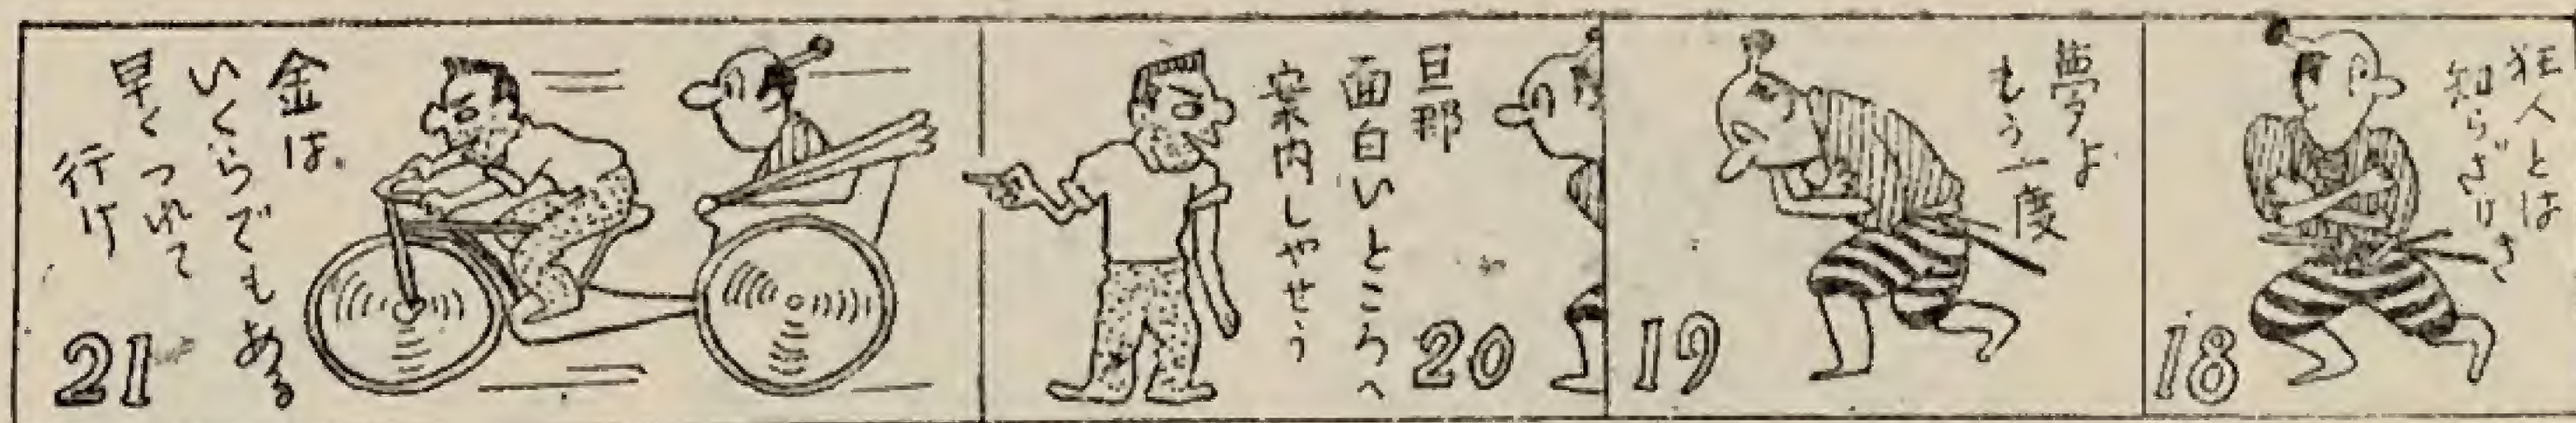 狂人とは
知らざりき
18
夢よ
もう一度
19
旦那
面白いところへ
案内しやせう
20
金は
いくらでもある
早くつれて
行け
21